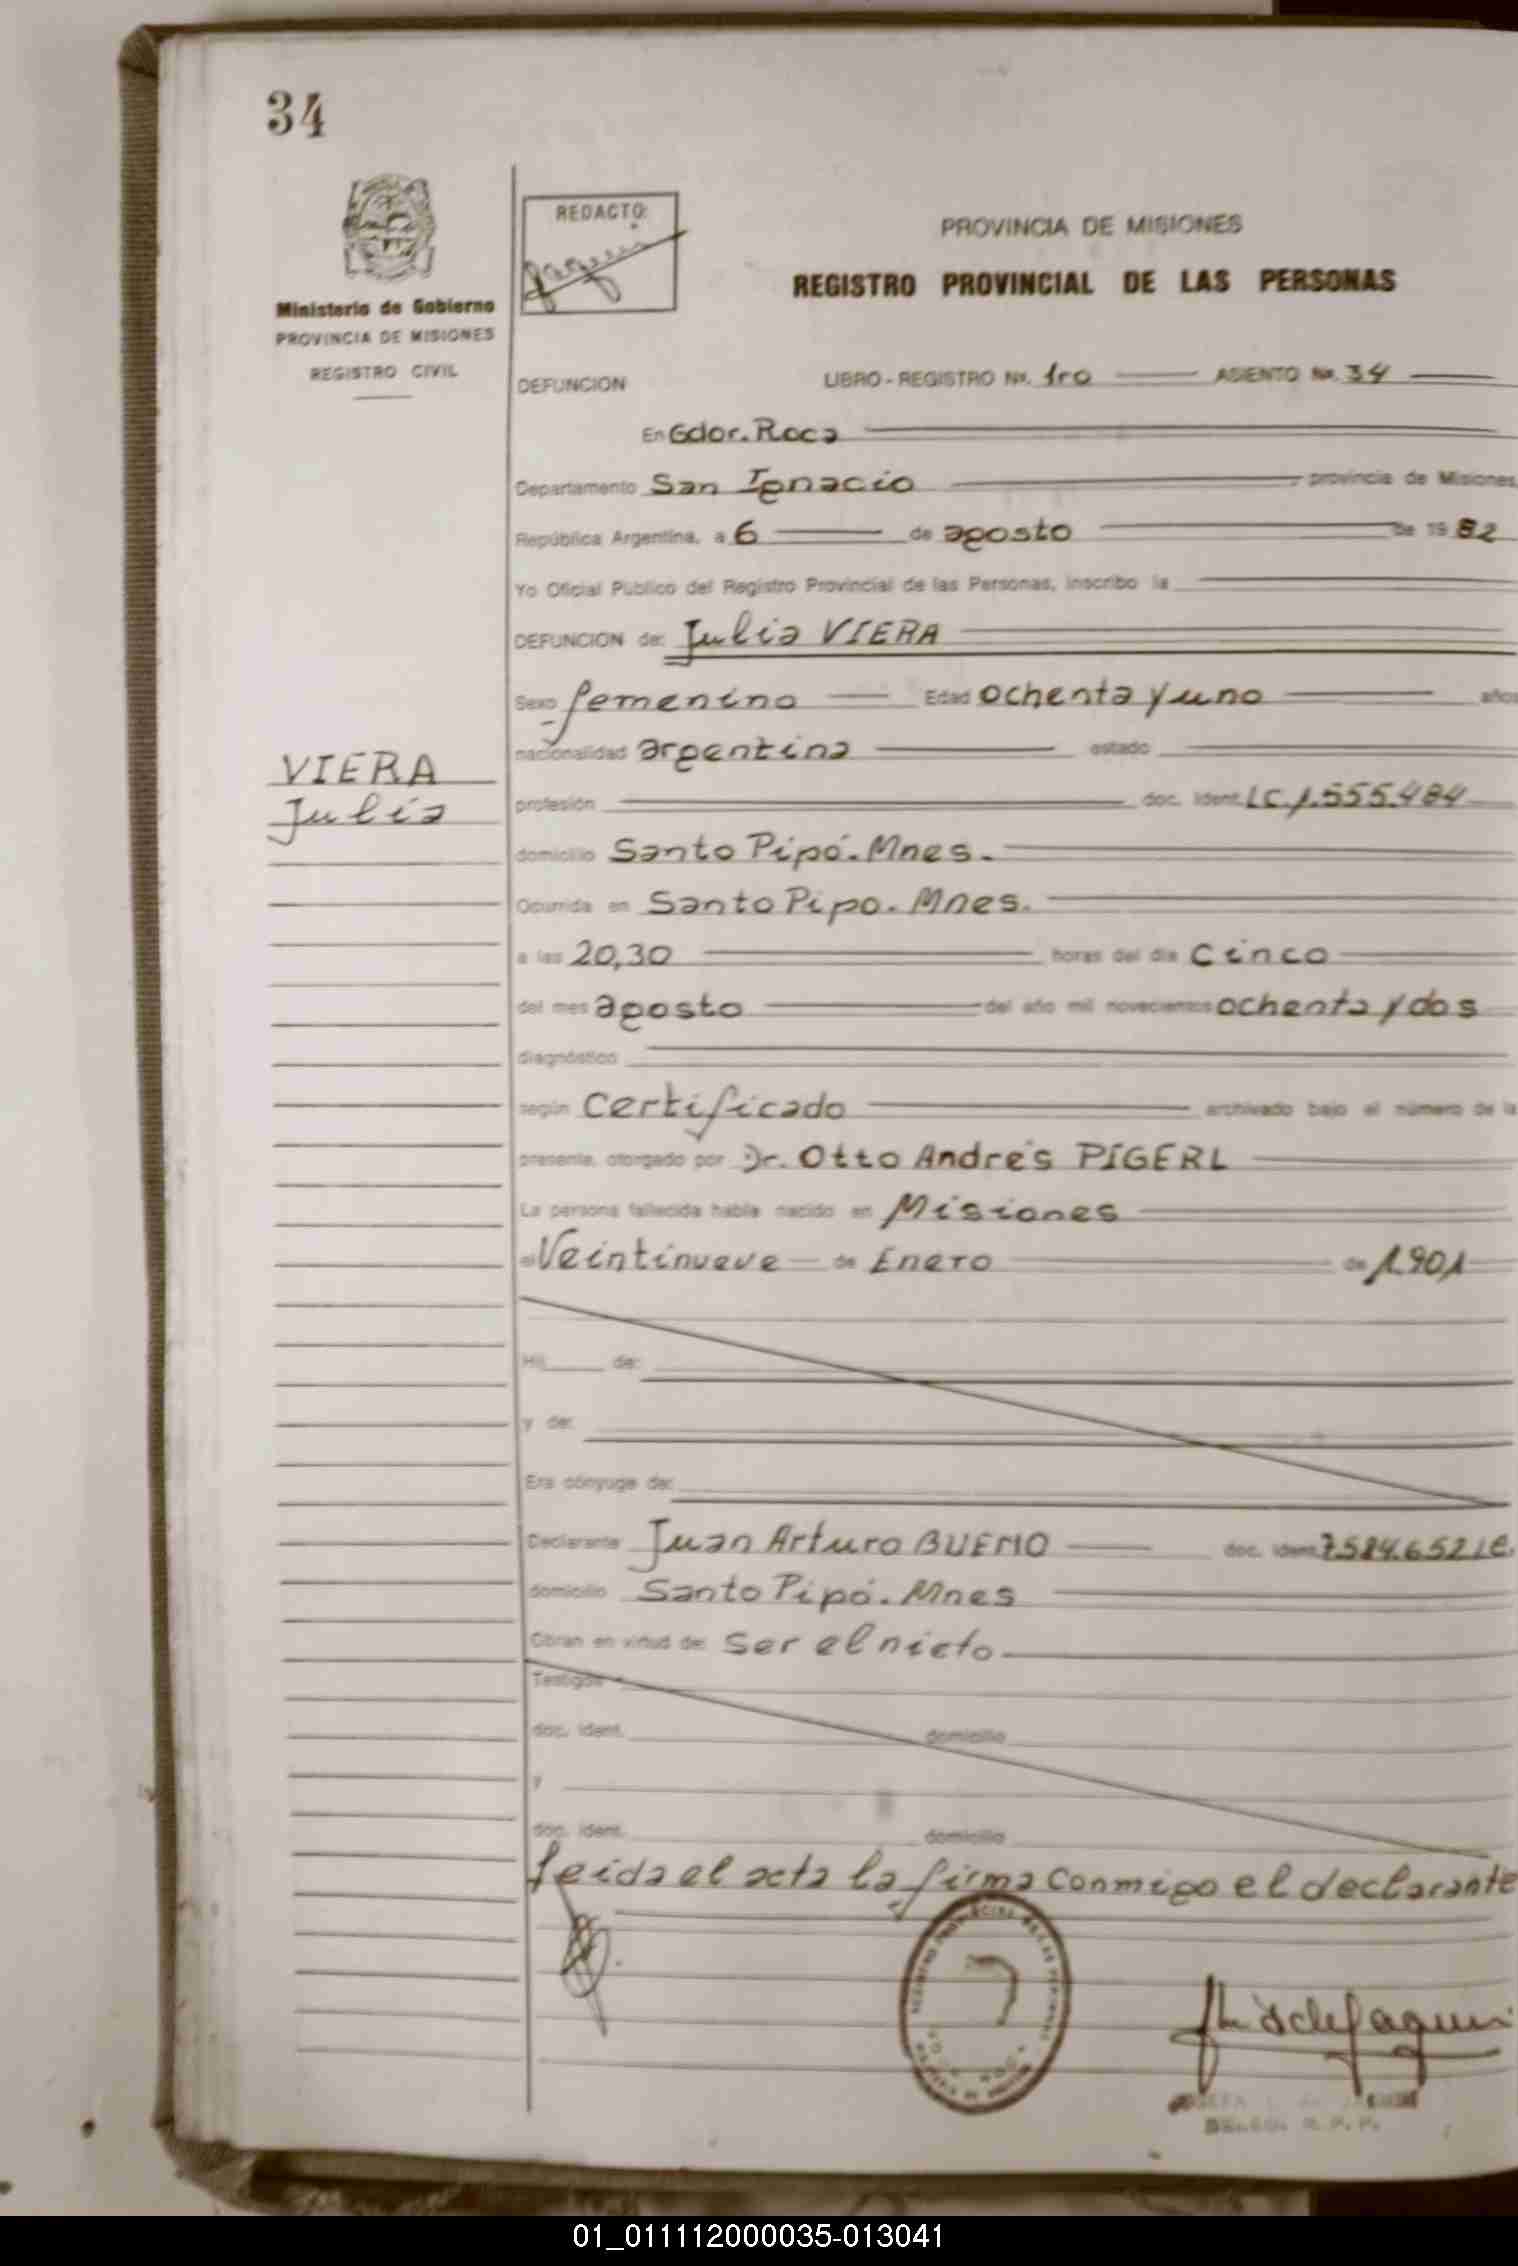 34
Ministerio de Gobierno
PROVINCIA DE MISIONES
REGISTRO CIVIL
REDACTÓ:
PROVINCIA DE MISIONES
REGISTRO PROVINCIAL DE LAS PERSONAS
DEFUNCION LIBRO-REGISTRO No. 1ro ASIENTO No. 34
En Gdor. Roca
Departamento San Ignacio provincia de Misiones
República Argentina, a 6 de agosto de 1982
Yo Oficial Público del Registro Provincial de las Personas, inscribo la
DEFUNCION de: Julia VIERA
Sexo femenino Edad ochenta y uno años
nacionalidad argentina estado
VIERA
Julia
profesión doc. ident. LC 1.555.484
domicilio Santo Pipó. Mnes.
Ocurrida en Santo Pipo. Mnes.
a las 20,30 horas del día Cinco
del mes agosto del año mil novecientos ochenta y dos
diagnóstico
según Certificado archivado bajo el número de la
presente, otorgado por Dr. Otto Andrés PIGERL
La persona fallecida había nacido en Misiones
el Veintinueve de Enero de 1.901
Hij de:
y de:
Era cónyuge de:
Declarante Juan Arturo BUENO doc. ident. 7.584.652 LE.
domicilio Santo Pipó. Mnes
Obran en virtud de: ser el nieto
Testigos
doc. ident. domicilio
y
doc. ident. domicilio
Leida el acta la firma conmigo el declarante
01_011112000035-013041